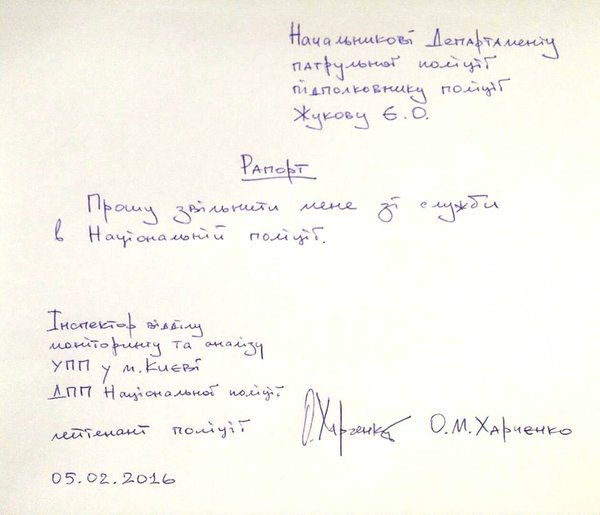 Начальникові Департаменту
патрульної поліції
підполковнику поліції
Жукову Є.О.
Рапорт
Прошу звільнити мене зі служби
в Національній поліції.
Інспектор відділу
моніторингу та аналізу
УПП у м. Києві
ДПП Національної поліції
лейтенант поліції О.Харченко О.М.Харченко
05.02.2016